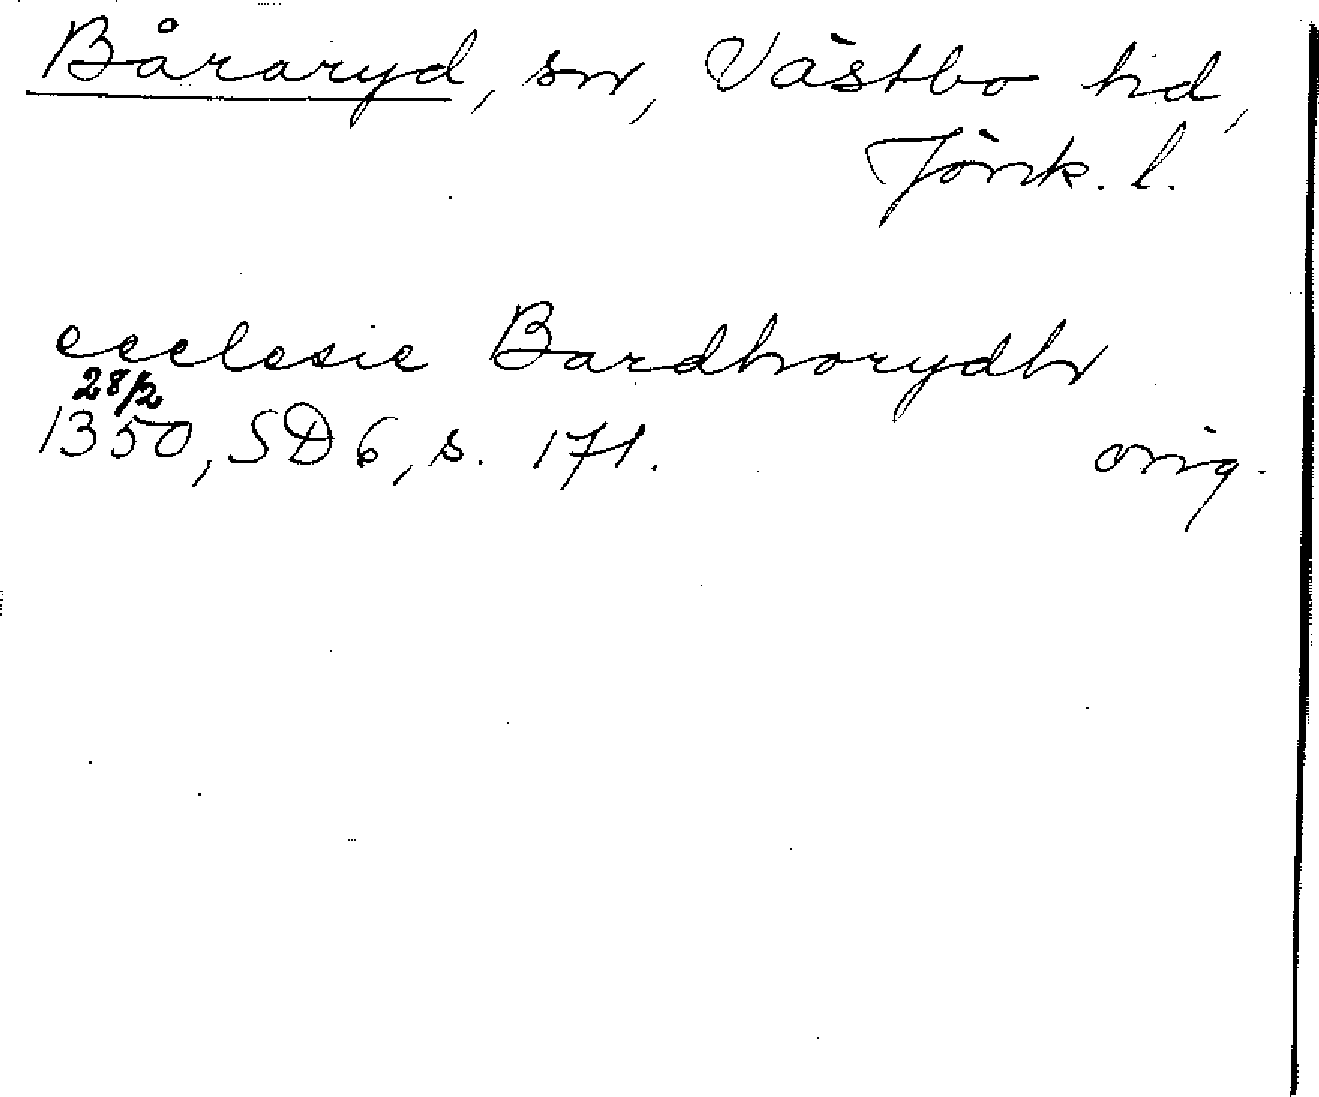 Båraryd, sn, Västbo hd,
Jönk. l.
ecclesie Bardhorydh
28/2
1350, SD 6, s. 171. orig.